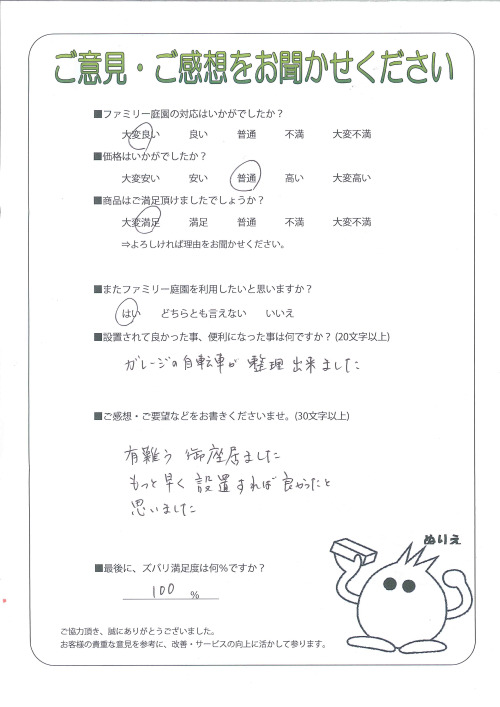 ご意見・ご感想をお聞かせください
■ファミリー庭園の対応はいかがでしたか？
大変良い 良い 普通 不満 大変不満
■価格はいかがでしたか？
大変安い 安い 普通 高い 大変高い
■商品はご満足頂けましたでしょうか？
大変満足 満足 普通 不満 大変不満
⇒よろしければ理由をお聞かせください。
■またファミリー庭園を利用したいと思いますか？
はい どちらとも言えない いいえ
■設置されて良かった事、便利になった事は何ですか？(20文字以上)
ガレージの自転車が整理出来ました
■ご感想・ご要望などをお書きくださいませ。(30文字以上)
有難う御座居ました
もっと早く設置すれば良かったと
思いました
ぬりえ
■最後に、ズバリ満足度は何％ですか？
100 %
ご協力頂き、誠にありがとうございました。
お客様の貴重な意見を参考に、改善・サービスの向上に活かして参ります。